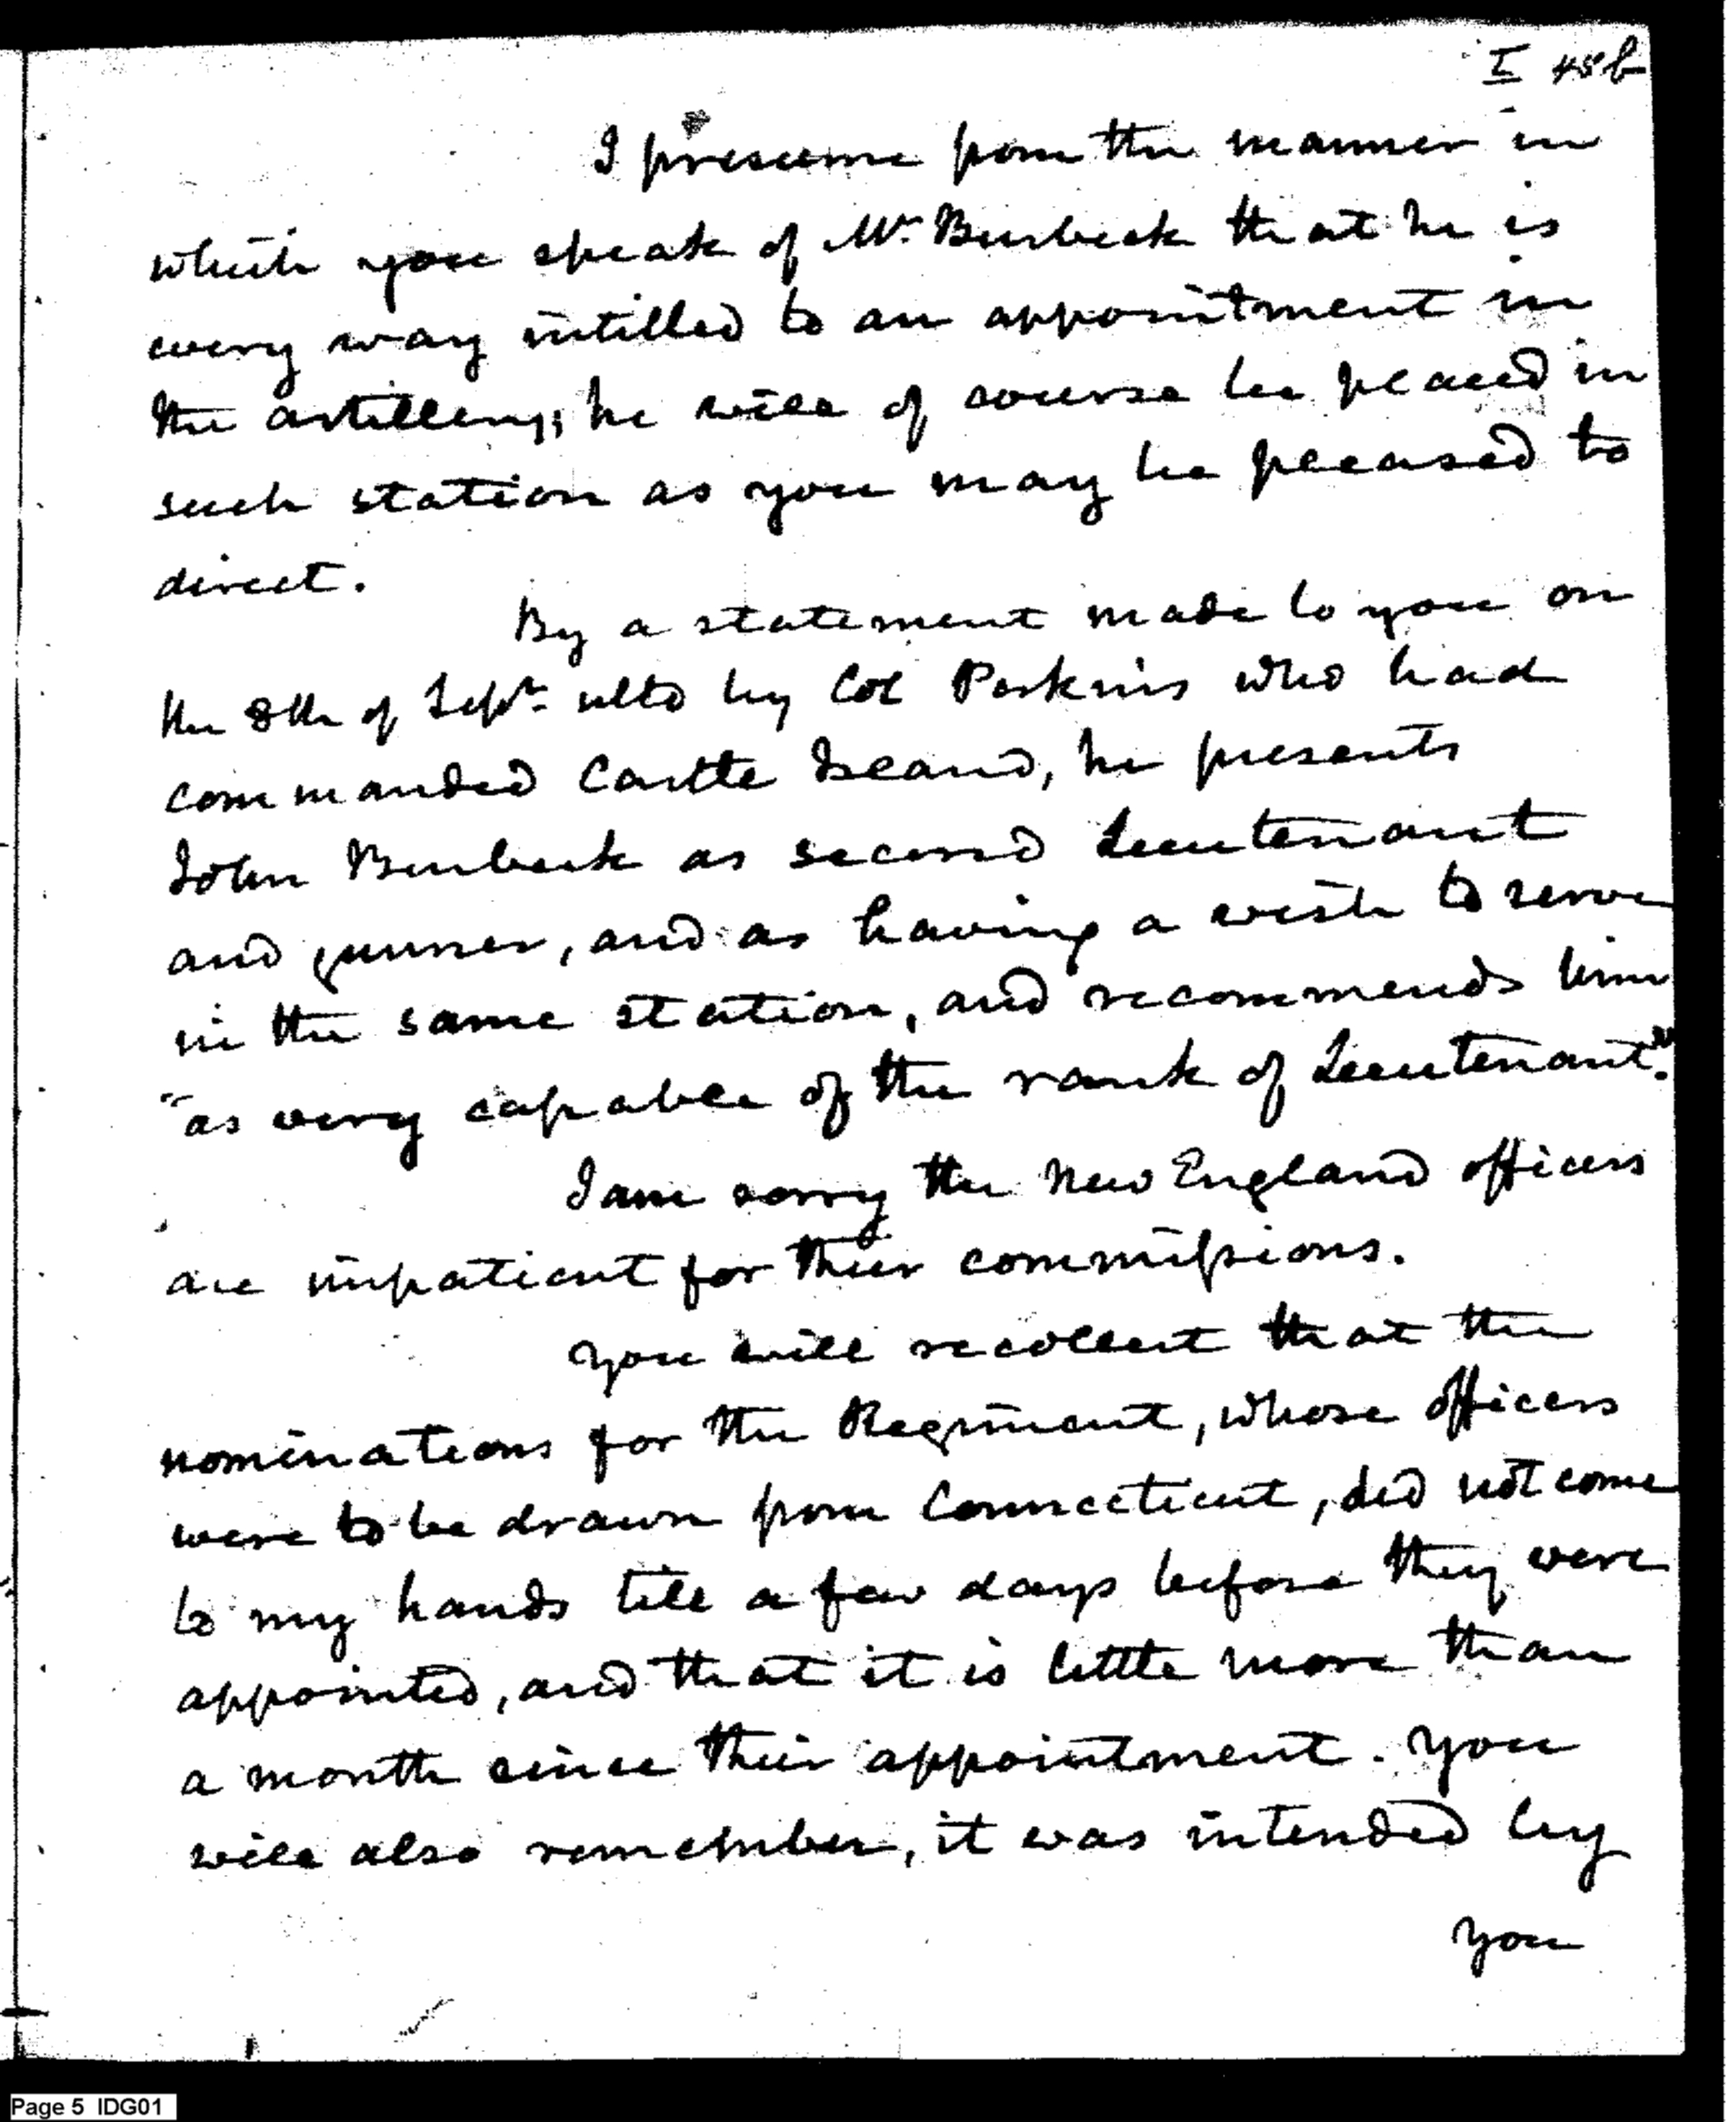 I 48b
I presume from the manner in
which you speak of Mr. Burbeck that he is
every way intitled to an appointment in
the artillery; he will of course be placed in
such station as you may be pleased to
direct.
By a statement made to you on
the 8th of Sepr. ulto by Col Perkins who had
commanded Castle Island, he presents
John Burbeck as second Lieutenant
and gunner, and as having a wish to serve
in the same station, and recommends him
"as very capable of the rank of Lieutenant."
I am sorry the New England officers
are impatient for their commissions.
You will recollect that the
nominations for the Regiment, whose officers
were to be drawn from Connecticut, did not come
to my hands till a few days before they were
appointed, and that it is little more than
a month since their appointment. You
will also remember, it was intended by
you
Page 5 IDG01